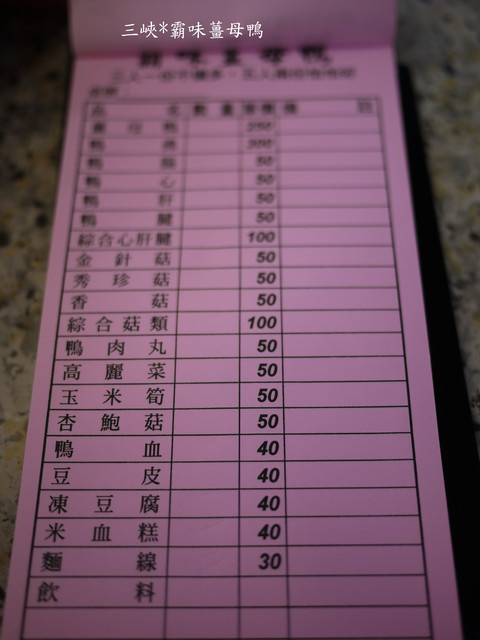 三峽*霸味薑母鴨
霸味薑母鴨
品 名 數 量 單價 備 註
250
鴨 300
鴨 50
鴨 心 50
鴨 肝 50
鴨 腱 50
綜合心肝腱 100
金針菇 50
秀珍菇 50
香菇 50
綜合菇類 100
鴨肉丸 50
高麗菜 50
玉米筍 50
杏鮑菇 50
鴨血 40
豆皮 40
凍豆腐 40
米血糕 40
麵線 30
飲料